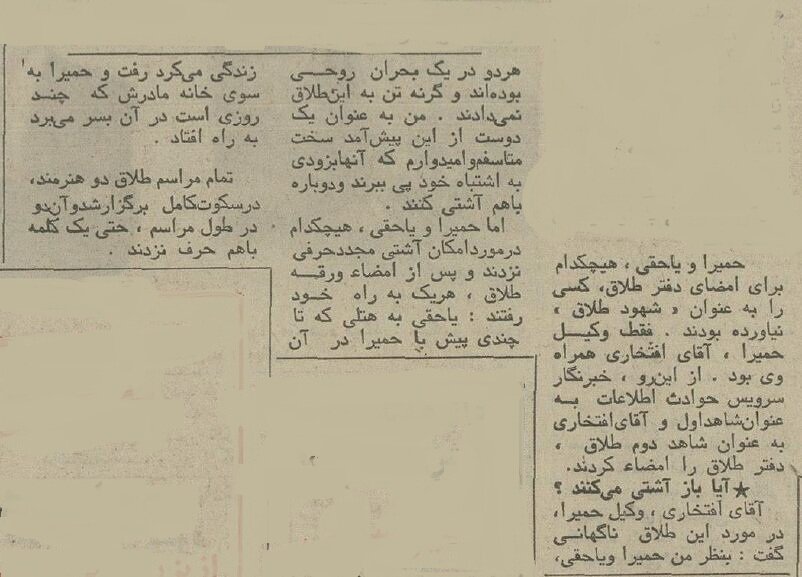 حمیرا و یاحقی ، هیچکدام
برای امضای دفتر طلاق، کسی
را به عنوان « شهود طلاق »
نیاورده بودند . فقط وکیـل
حمیرا ، آقای افتخاری همراه
وی بود . از این‌رو ، خبرنگار
سرویس حوادث اطلاعات به
عنوان‌شاهداول و آقای‌افتخاری
به عنوان شاهد دوم طلاق ،
دفتر طلاق را امضاء کردند.
★آیا باز آشتی می‌کنند ؟
آقای افتخاری ، وکیل حمیرا،
در مورد این طلاق ناگهانـی
گفت : بنظر من حمیرا ویاحقی،
هردو در یک بحران روحـی
بوده‌اند و گرنه تن به این‌طلاق
نمی‌دادند . من به عنوان یک
دوست از این پیش‌آمد سخت
متاسفم‌وامیدوارم که آنهابزودی
به اشتباه خود پی ببرند ودوباره
باهم آشتی کنند .
اما حمیرا و یاحقی ، هیچکدام
درموردامکان آشتی مجددحرفی
نزدند و پس از امضاء ورقـه
طلاق ، هریک به راه خـود
رفتند : یاحقی به هتلی که تا
چندی پیش با حمیرا در آن
زندگی می‌کرد رفت و حمیرا به
سوی خانه مادرش که چنـد
روزی است در آن بسر می‌برد
به راه افتاد .
تمام مراسم طلاق دو هنرمند،
درسکوت‌کامل برگزارشدوآن‌دو
در طول مراسم ، حتی یک کلمه
باهم حرف نزدند .